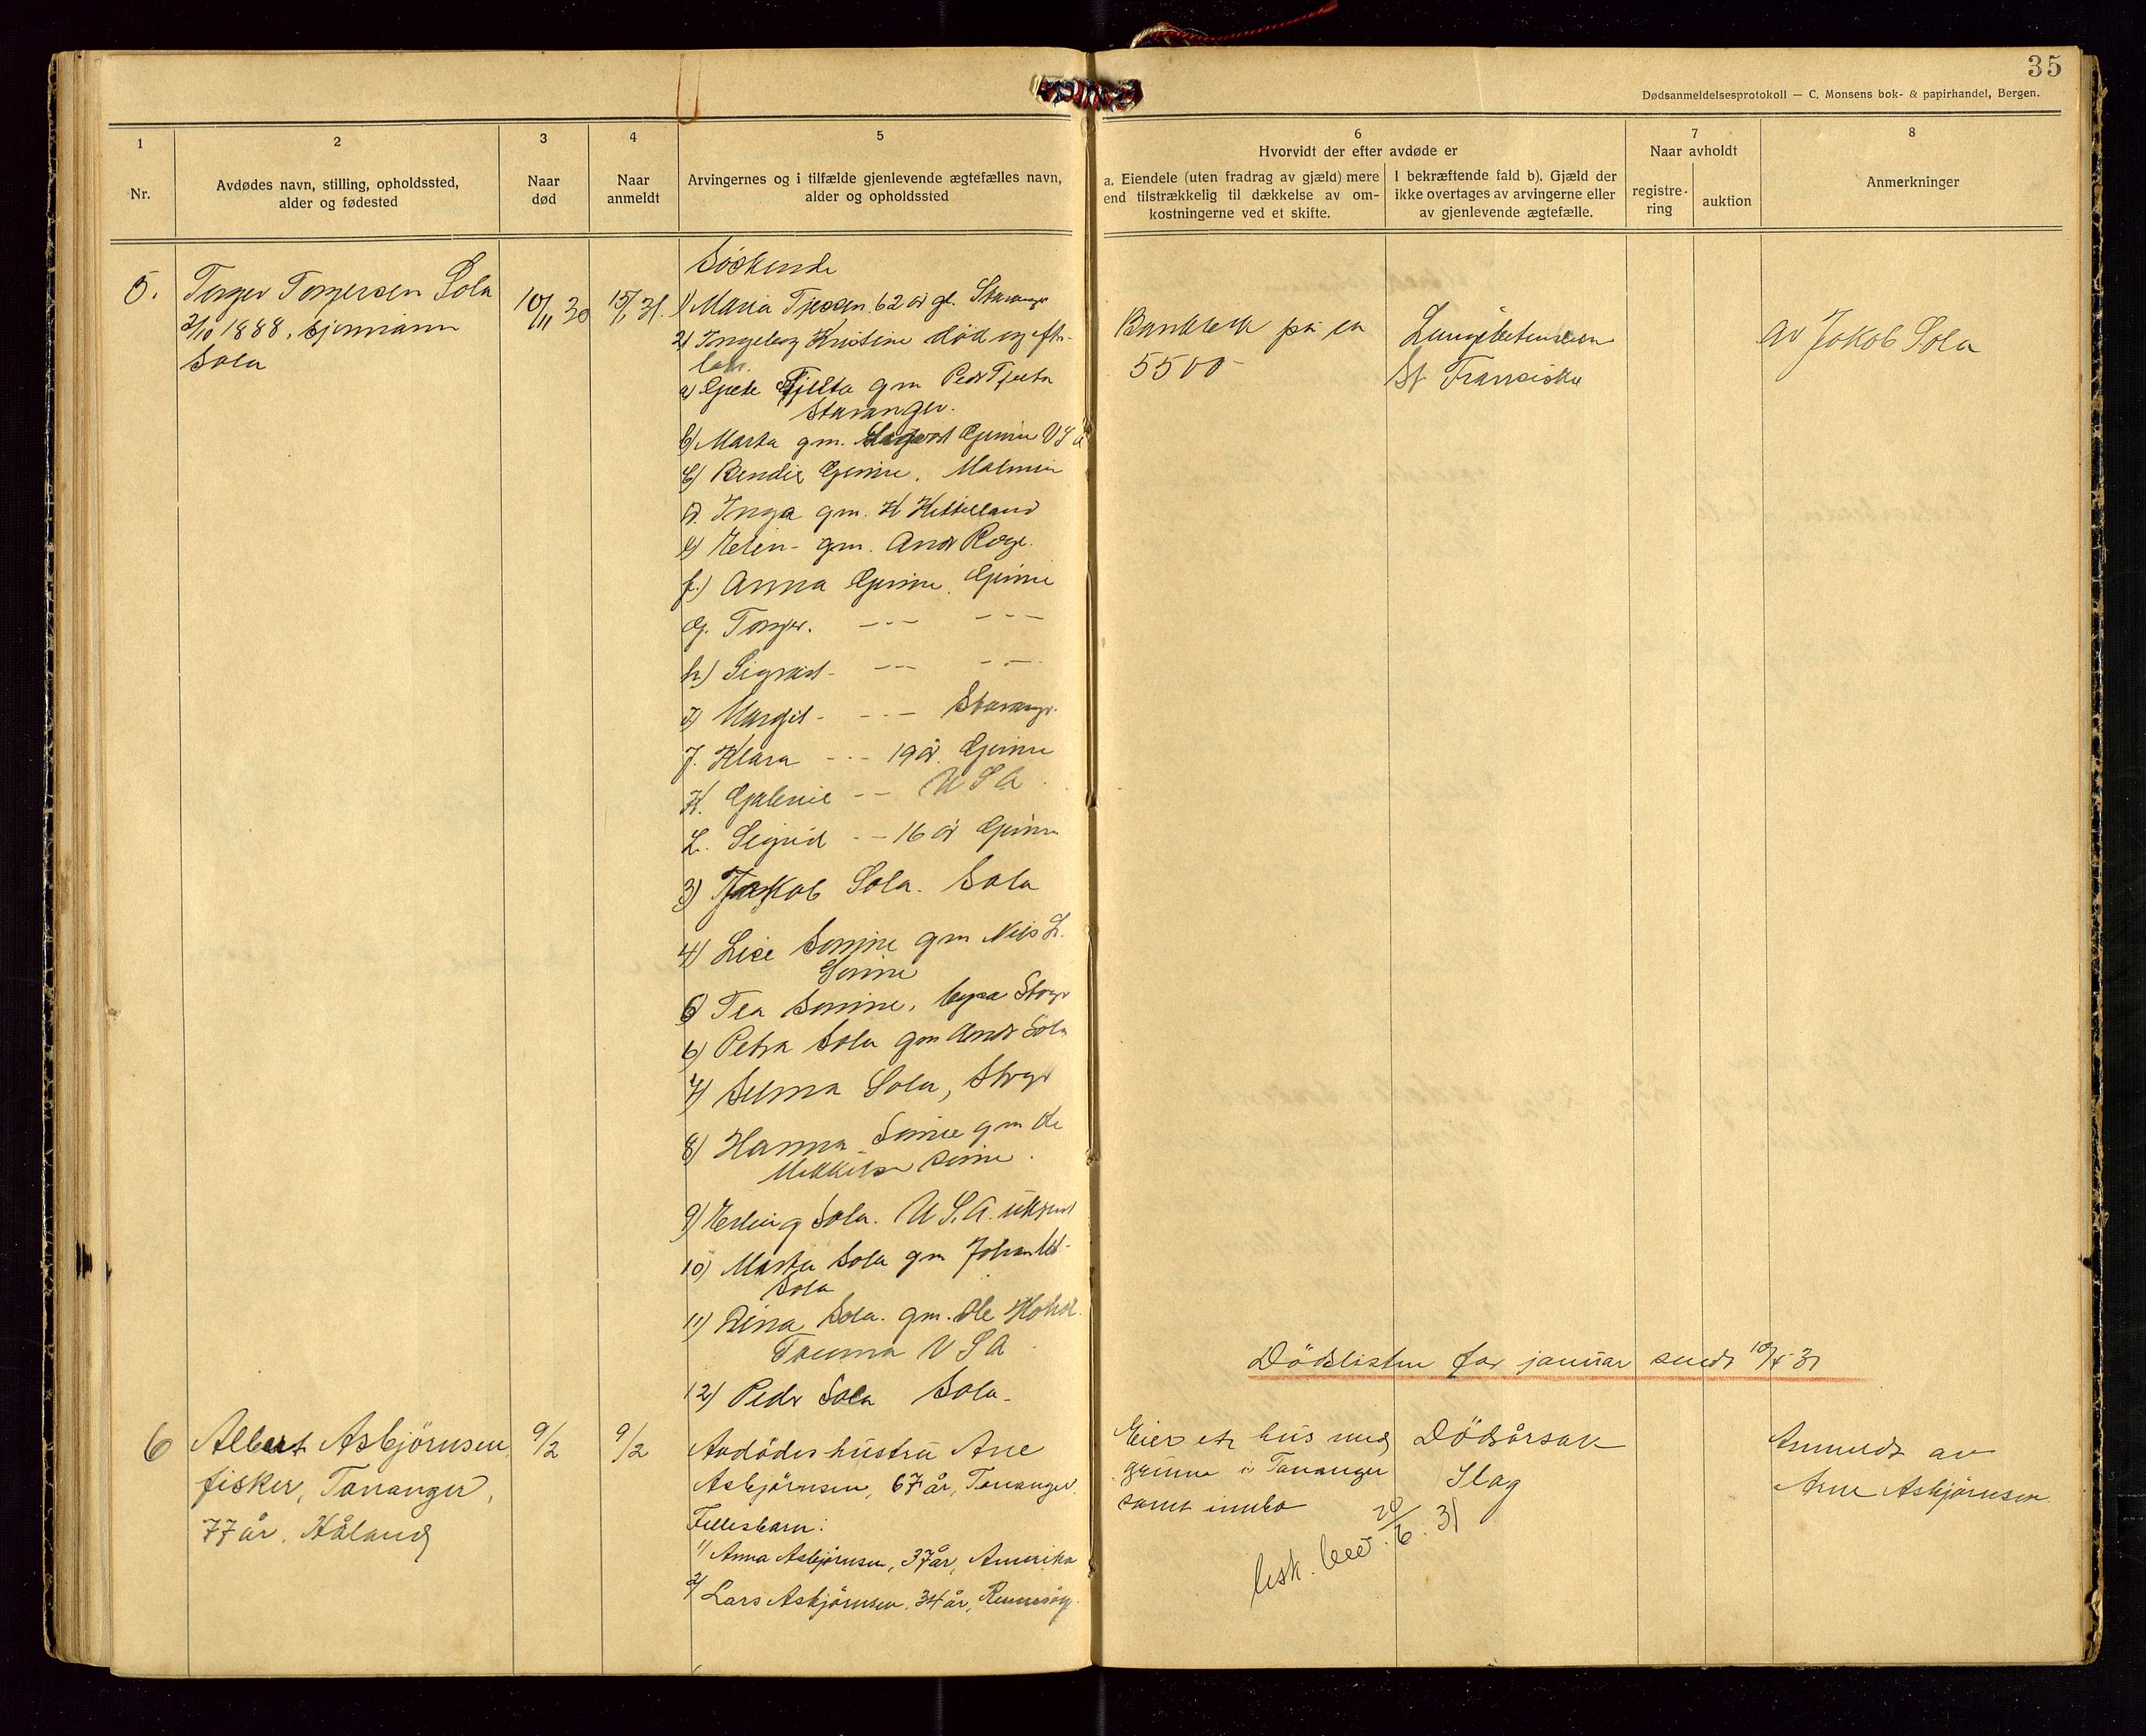 35
Dødsanmeldelsesprotokoll — C. Monsens bok- & papirhandel, Bergen.
1
Nr.
2
Avdødes navn, stilling, opholdssted,
alder og fødested
3
Naar
død
4
Naar
anmeldt
5
Arvingernes og i tilfælde gjenlevende ægtefælles navn,
alder og opholdssted
6
Hvorvidt der efter avdøde er
a. Eiendele (uten fradrag av gjæld) mere
end tilstrækkelig til dækkelse av om-
kostningerne ved et skifte.
I bekræftende fald b). Gjæld der
ikke overtages av arvingerne eller
av gjenlevende ægtefælle.
7
Naar avholdt
registre-
ring
auktion
8
Anmerkninger
5.
Torger Torgersen Sola
2/10 1888, sjømann
Sola
10/11 30
15/1 31.
Söskende
1) Maria 62 år gl. Stavanger
2) Ingeborg Kristine död og
a) Tjelta gm Peder Tjelta
Stavanger.
b) Marta gm. Sigvart Gimre U S A
c) Bendix Gimre. Malmin
d. Inga gm. H
e) Elen - gm. And Rege.
f.) Anna Gimre. Gimre
g. Torger. --- ---
h) Sigvard - --- ---
i) Margit - --- Stavanger.
J. Klara --- 19 år. Gimre
K. -- U S A
L. Sigrid -- 16 år Gimre
3) Jakob Sola. Sola
4) Lise Sömme gm Nils L.
Sömme
5) Tea Sömme, Stvgr
6) Petra Sola gm And Sola
7) Selma Sola, Stvgr
8) Hanna Sömme gm Ole
Mikkelsen Sömme.
9) Erling Sola. U S. A. ukjent
10) Marta Sola gm Johan
Sola
11) Dina Sola. gm. Ole
Tacoma U S A
12) Peder Sola Sola
Bankbok på ca
5500 -
Lungebetennelse
St Francisko
av Jakob Sola
Dödslisten for januar sendt 31
6
Albert Asbjörnsen,
fisker, Tananger,
77 år. Håland
9/2
9/2
Avdödes hustru Ane
Asbjörnsen, 67 år, Tananger.
Fellesbarn:
1/ Anna Asbjörnsen, 37 år, Amerika
2/ Lars Asbjörnsen, 34 år, Rennesöy.
Eier et hus med
grunn i Tananger
samt innbo
Dödsårsak
Slag
20/6. 31
Anmeldt av
Arne Asbjörnsen